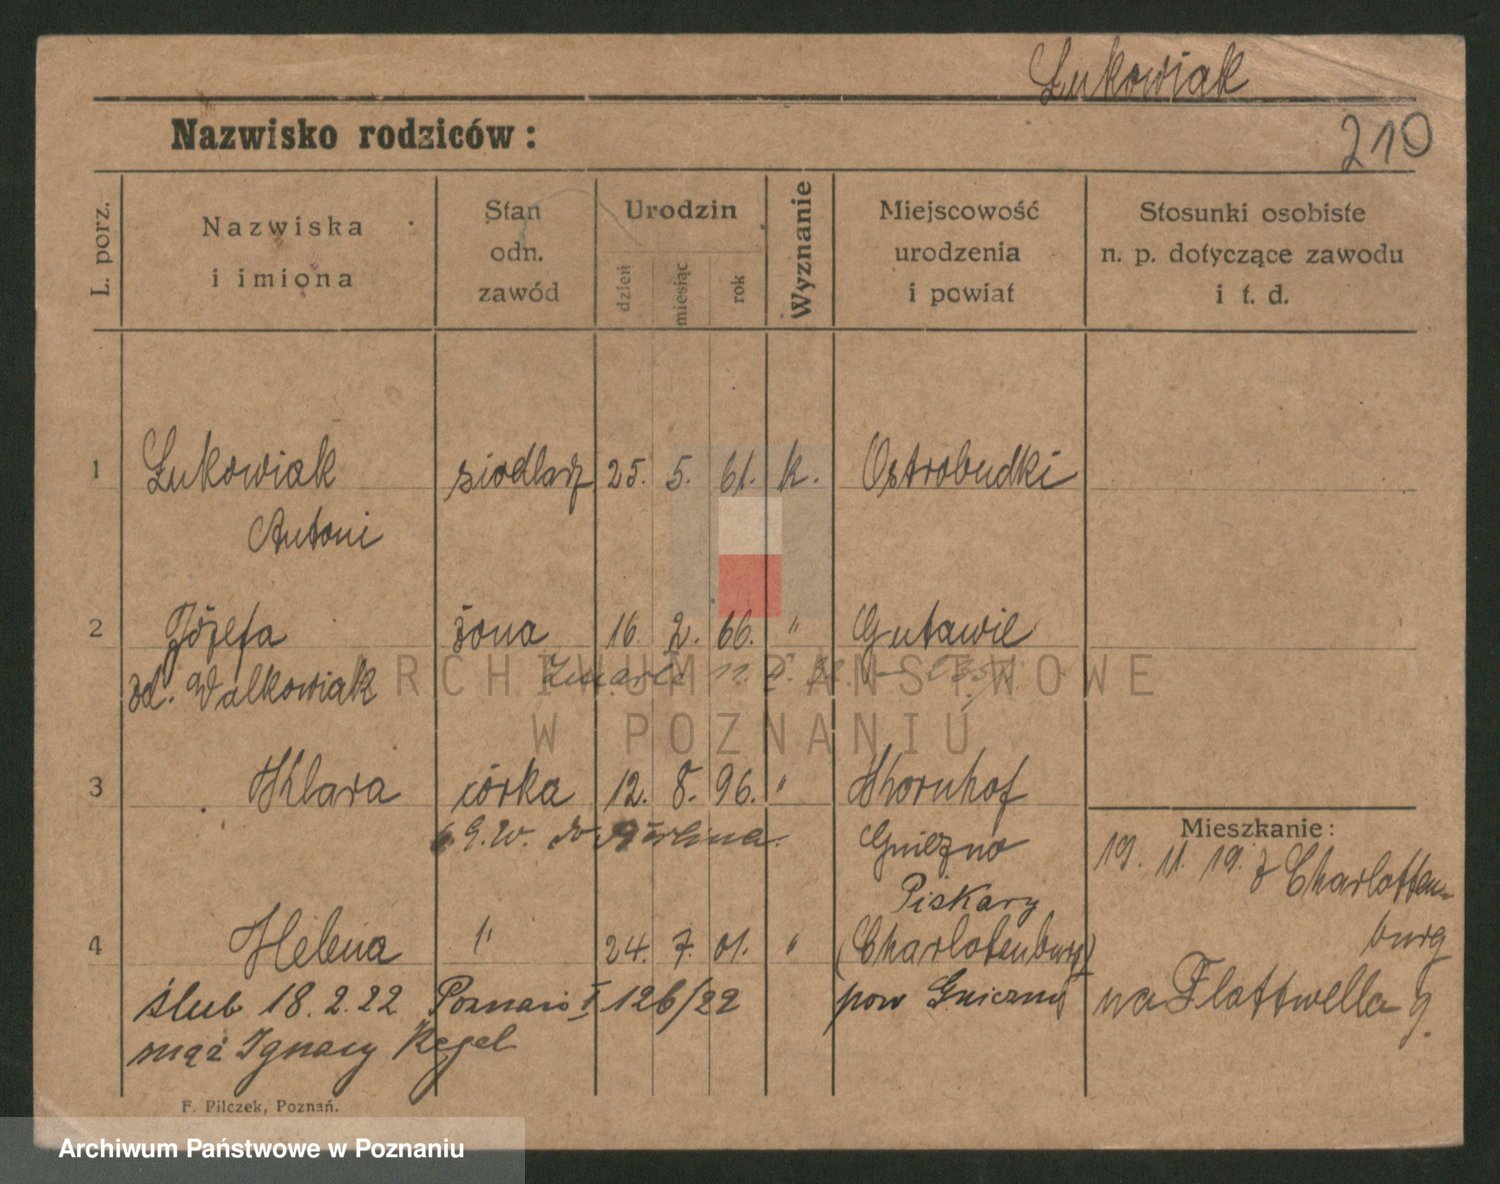 Łukowiak
210
Nazwisko rodziców:
L. porz.
Nazwiska
i imiona
Stan
odn.
zawód
Urodzin
dzień
miesiąc
rok
Wyznanie
Miejscowość
urodzenia
i powiat
Stosunki osobiste
n. p. dotyczące zawodu
i t. d.
1 Łukowiak siodlarz 25. 5. 61. k. Ostrobudki
Antoni
2 Józefa żona 16. 2. 66. " Gutawie
zd. Walkowiak
Zmarła 11.
ARCHIWUM PAŃSTWOWE
W POZNANIU
3 Klara córka 12. 8. 96. " Hornhof
G.W. do Berlina. Gniezno
Piskary
4 Helena " 24. 7. 01. " (Charlotenburg)
ślub 18. 2. 22 Poznań I 126/22 pow Gniezno
mąż Ignacy Regel
Mieszkanie:
19. 11. 19. z Charlotten-
burg
na Flattwella 9.
F. Pilczek, Poznań.
Archiwum Państwowe w Poznaniu